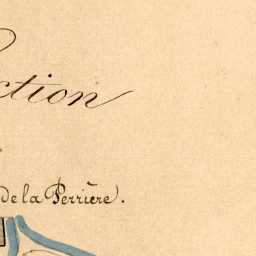 ction
de la Perrière.